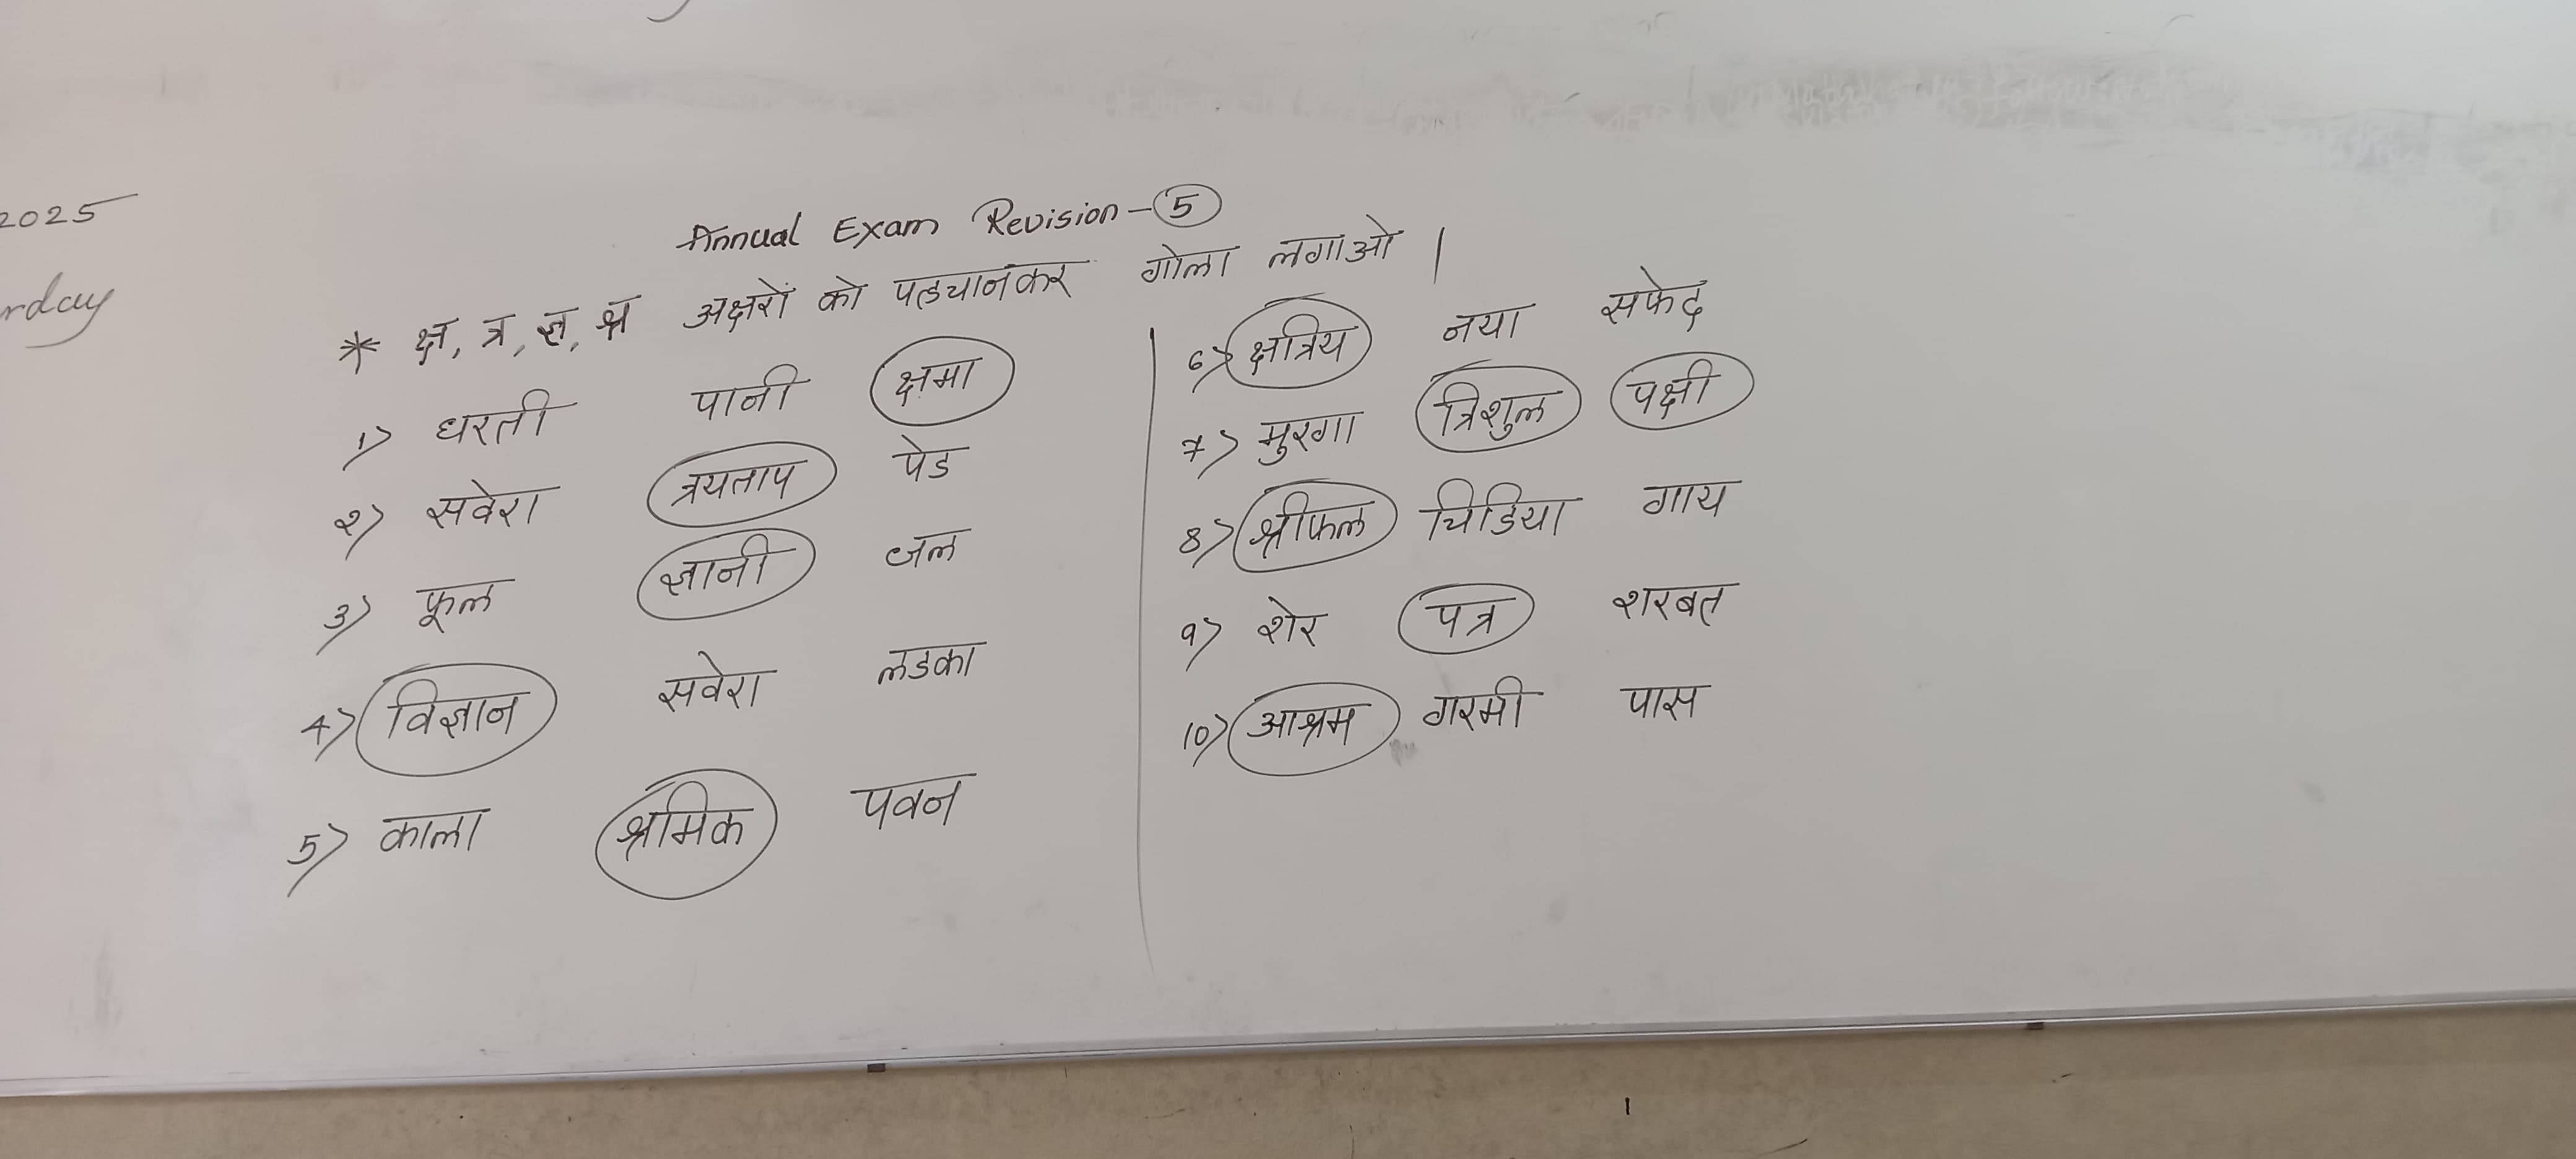 2025
rday
Annual Exam Revision - 5
* क्ष, त्र, ज्ञ, श्र अक्षरों को पहचानकर गोला लगाओ |
1) धरती पानी क्षमा
२) सवेरा त्रयताप पेड
3) फूल ज्ञानी जल
4) विज्ञान सवेरा लडका
5) काला श्रमिक पवन
6) क्षत्रिय नया सफेद
7) मुरगा त्रिशुल पक्षी
8) श्रीफल चिडिया गाय
9) शेर पत्र शरबत
10) आश्रम गरमी पास